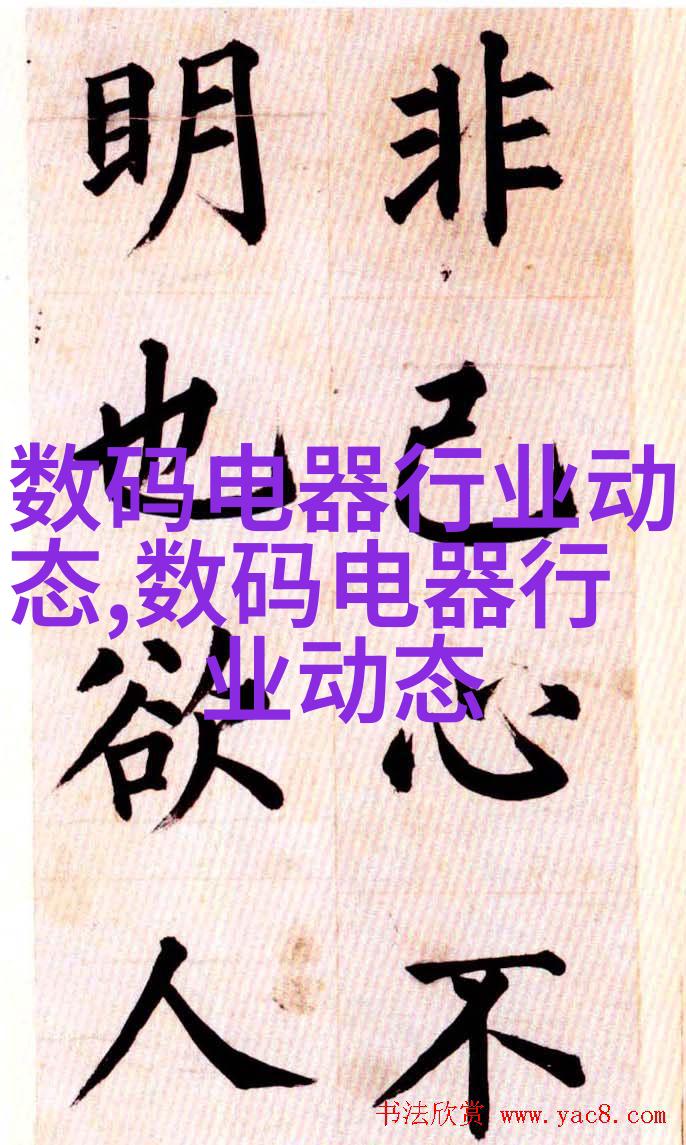 非己心不
明也欲人
数码电器行业动
态,数码电器行
业动态
书法欣赏 www.yac8.com